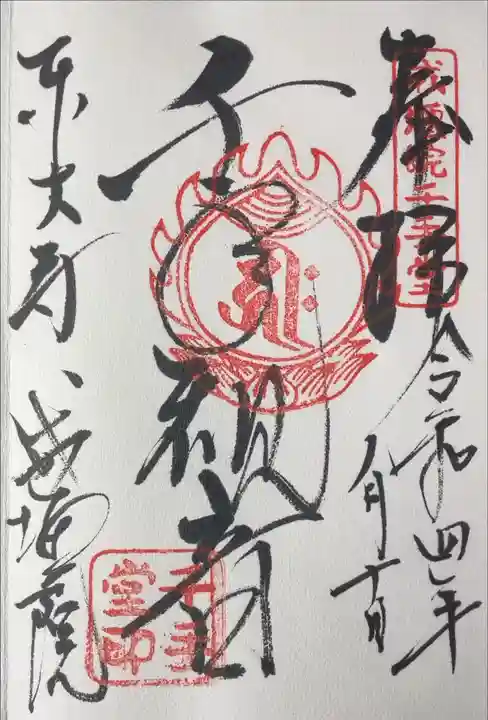 戒壇院千手堂
奉拝
令和四年
八月十日
千手観音
千手堂印
東大寺 戒壇院